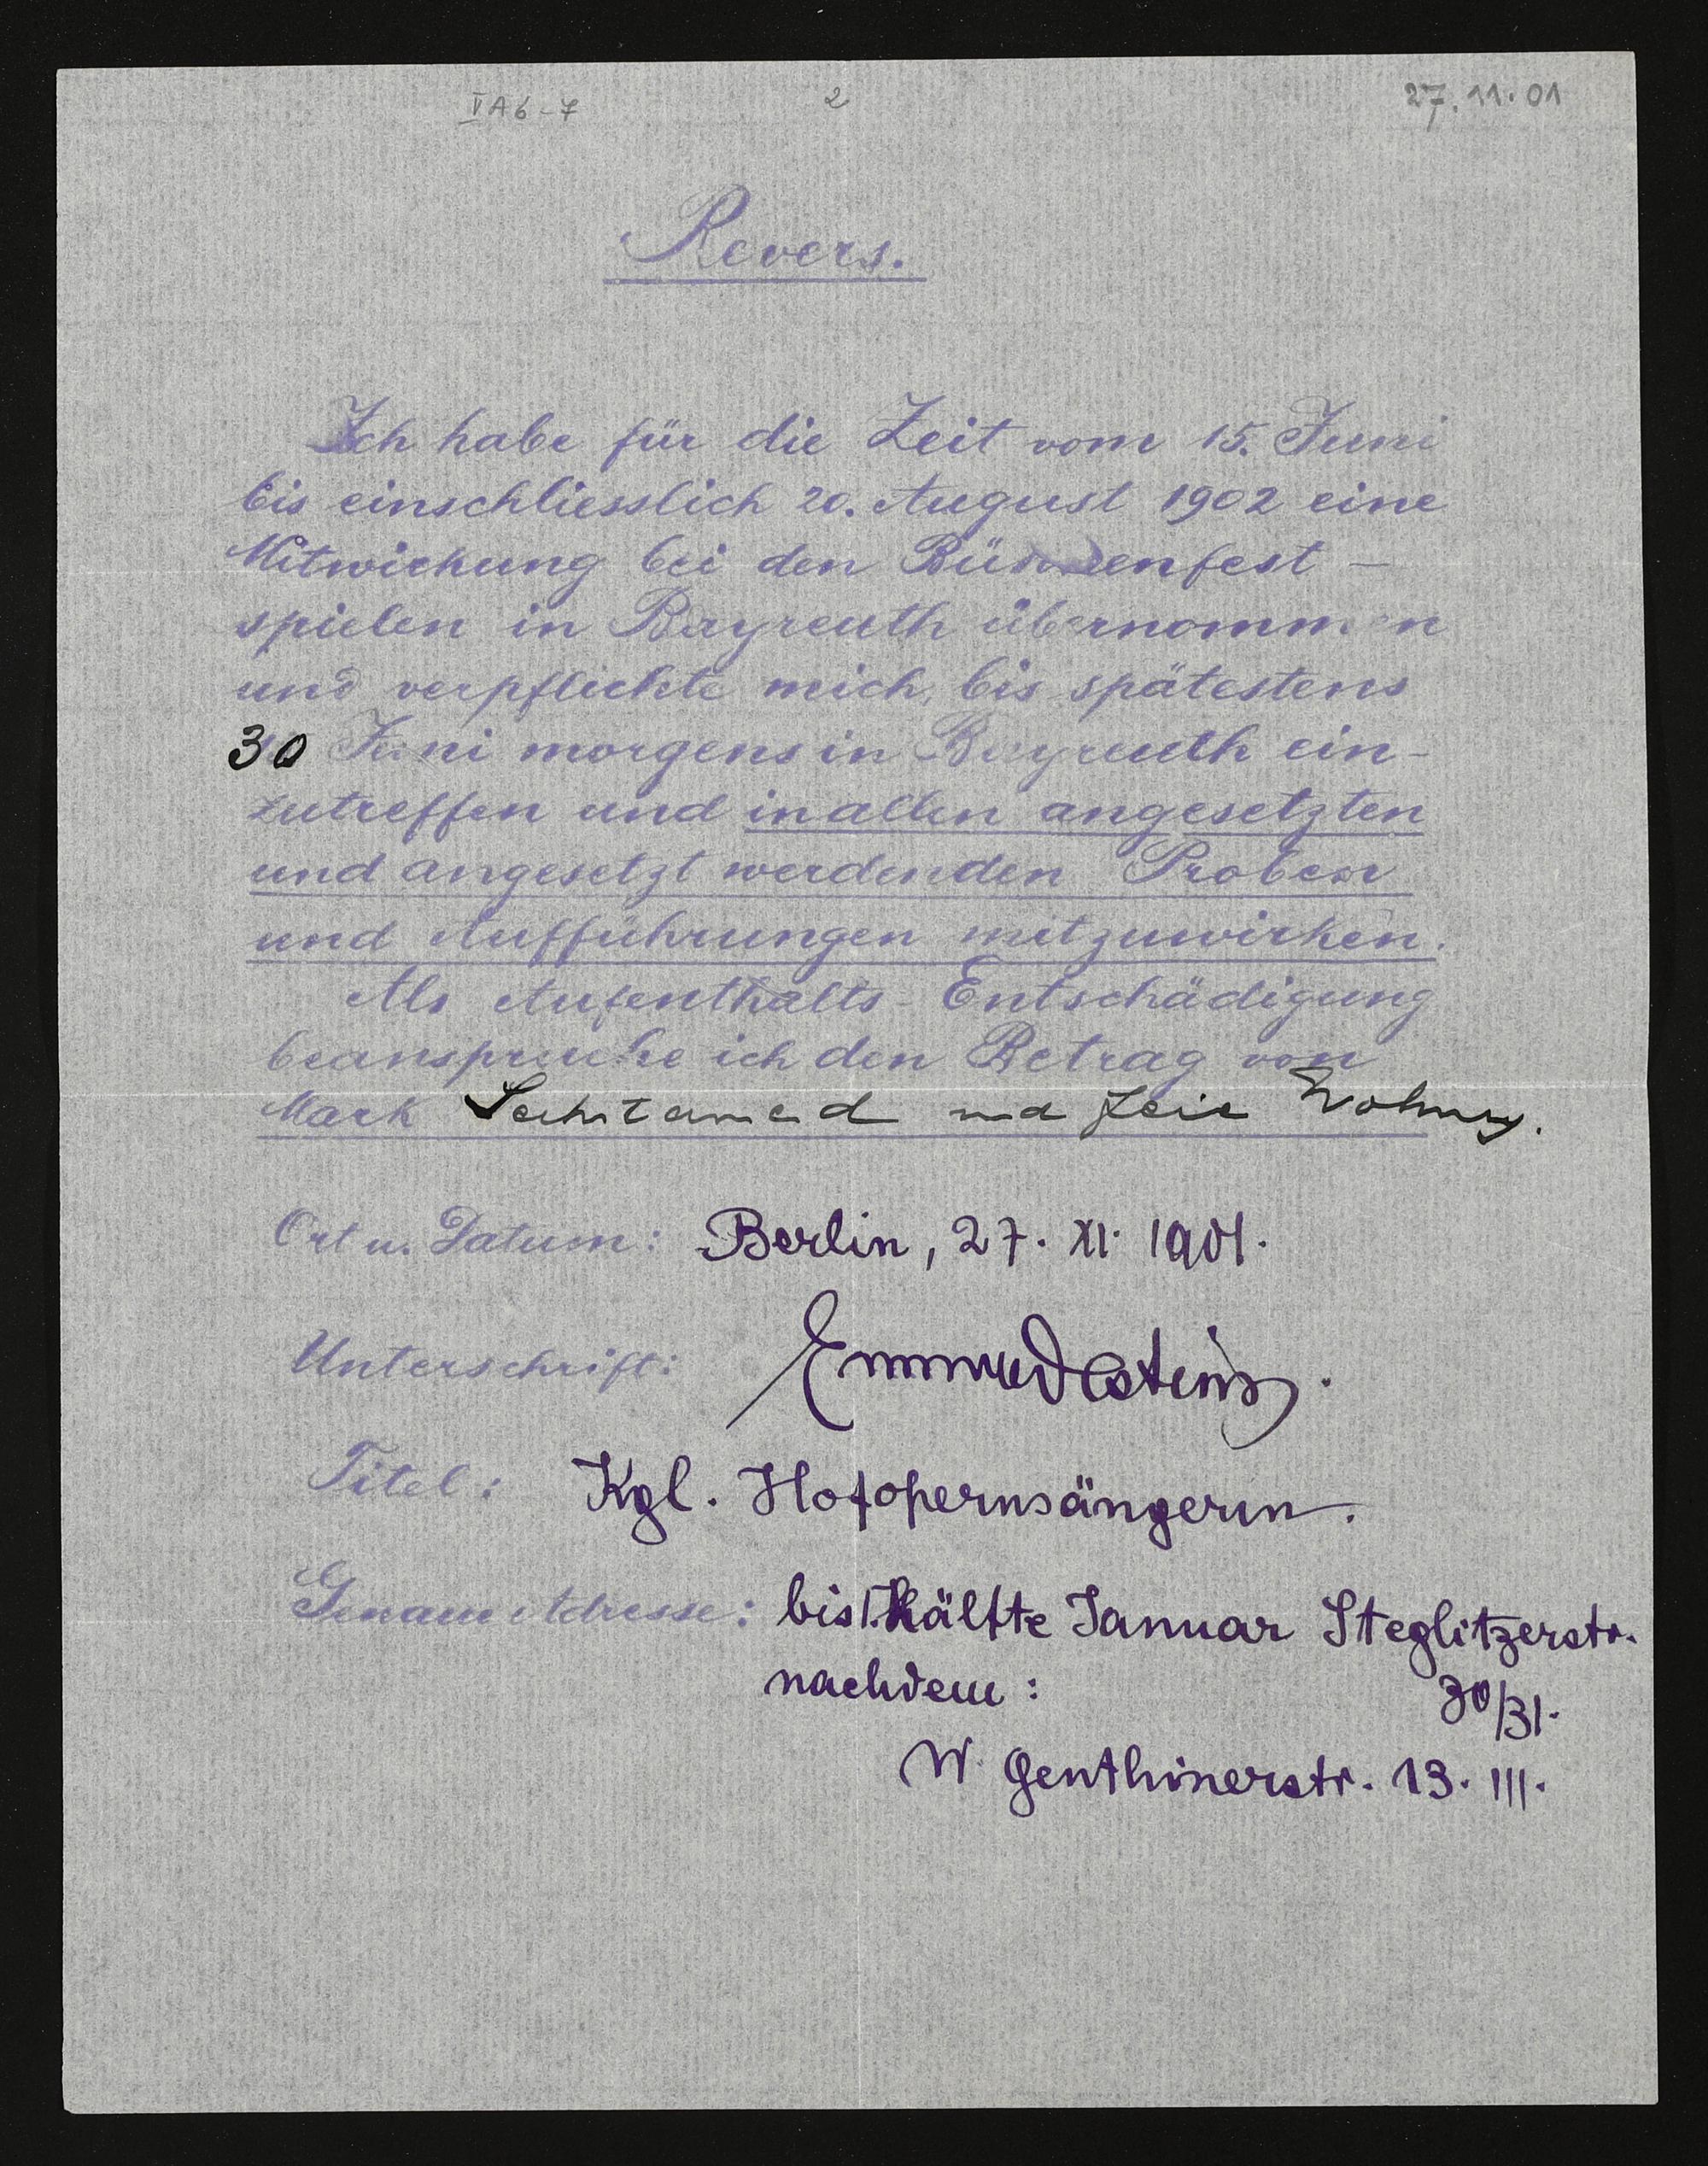 VA6-7 2 27.11.01
Revers.
Ich habe für die Zeit vom 15. Juni
bis einschliesslich 20. August 1902 eine
Mitwirkung bei den Bühnenfest-
spielen in Bayreuth übernommen
und verpflichte mich, bis spätestens
30 Juni morgens in Bayreuth ein-
zutreffen und in allen angesetzten
und angesetzt werdenden Proben
und Aufführungen mitzuwirken.
Als Aufenthalts-Entschädigung
beanspruche ich den Betrag von
Mark Sechstausend und freie Wohnung.
Ort u. Datum: Berlin, 27. XI. 1901.
Unterschrift: Emmy Destinn.
Titel: Kgl. Hofopernsängerin.
Genaue Adresse: bis 1. Hälfte Januar Steglitzerstr.
30/31.
nachdem:
W. Genthinerstr. 13. III.